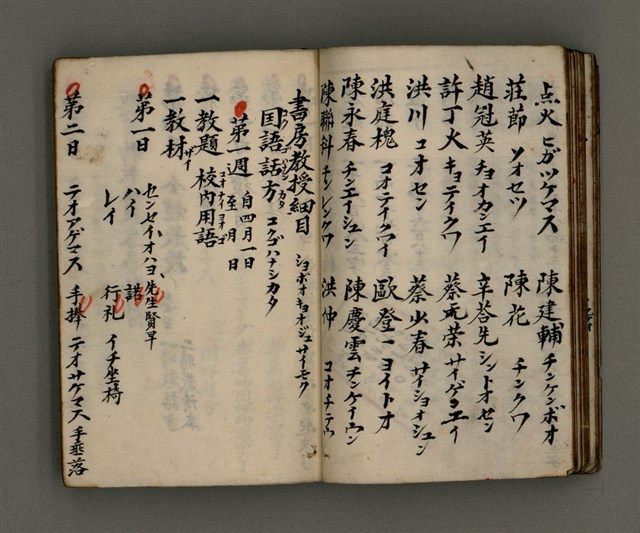 点火 ヒガツケマス 陳建輔 チンケンボオ
莊節 ソオセツ 陳花 チンクワ
趙冠英 チョオカンエイ 辛荅先 シントオセン
許丁火 キョテイクワ 蔡元荣 サイゲヱエイ
洪川 コオセン 蔡少春 サイショオシュン
洪庭槐 コオテイクワイ 歐登一 ヨイトオ
陳永春 チンエイシュン 陳慶雲 チンケイウン
陳聯科 チンレンクワ 洪仲
書房教授細目 ショボオキョオジュサイモク
国語話方 コクゴハナシカタ
第一週 自四月一日 至月日
一教題 校内用語
一教材
第一日 センセイ、オハヨ、先生賢早
ハイ 諾
レイ 行礼 イチ坐椅
第二日 テオアゲマス 手捧 テオサゲマス 手垂落